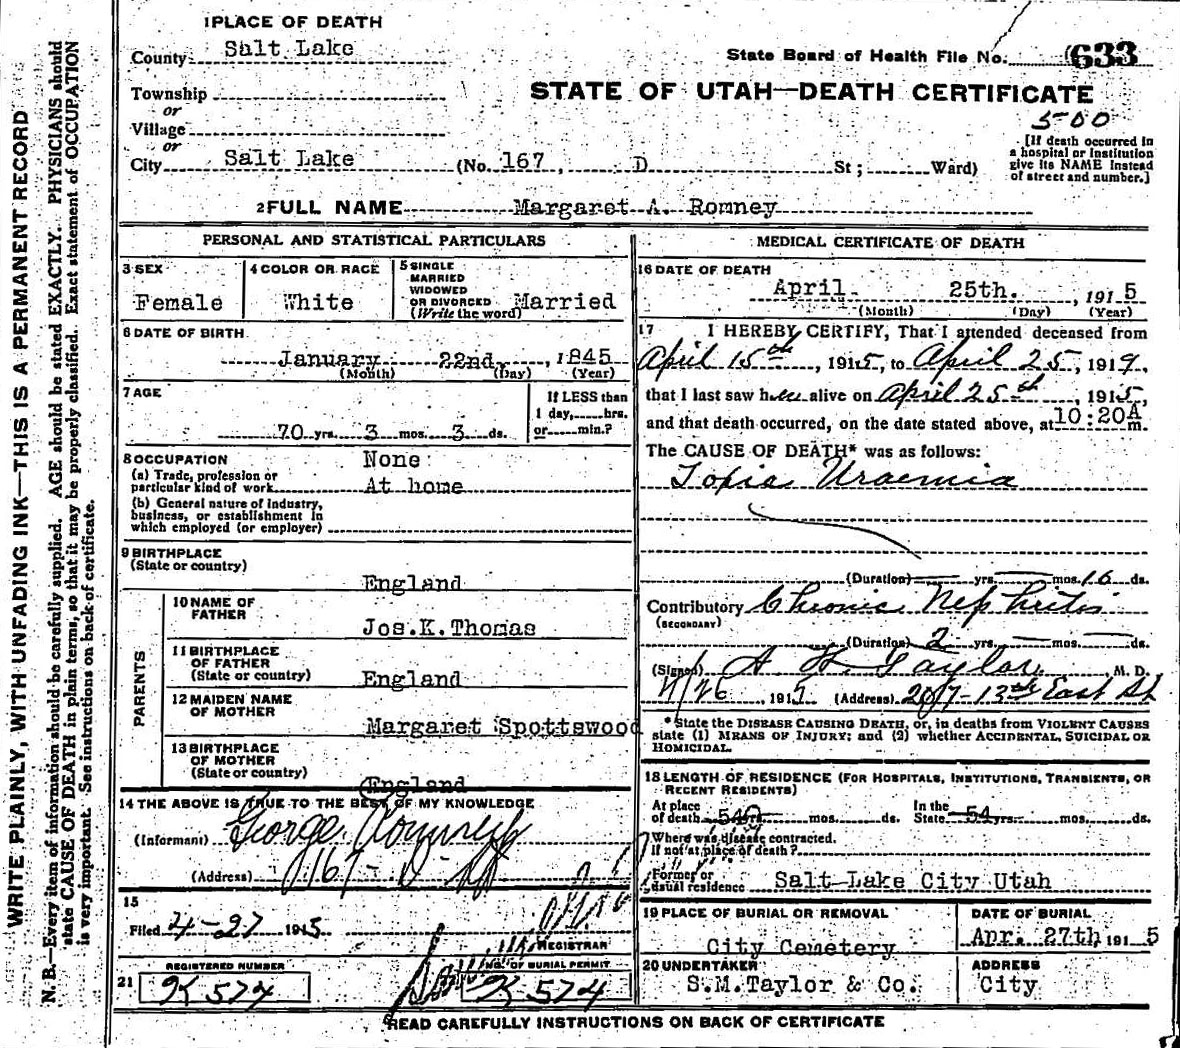 1 PLACE OF DEATH
County Salt Lake
State Board of Health File No. 633
Township
or
STATE OF UTAH—DEATH CERTIFICATE
Village
or
500
City Salt Lake (No. 167, D St; Ward)
[If death occurred in
a hospital or institution
give its NAME instead
of street and number.]
2 FULL NAME Margaret A. Romney
PERSONAL AND STATISTICAL PARTICULARS
3 SEX
Female
4 COLOR OR RACE
White
5 SINGLE
MARRIED
WIDOWED
OR DIVORCED
(Write the word) Married
6 DATE OF BIRTH
January 22nd, 1845
(Month) (Day) (Year)
7 AGE
70 yrs. 3 mos. 3 ds.
If LESS than
1 day, hrs.
or min.?
8 OCCUPATION
None
(a) Trade, profession or
particular kind of work At home
(b) General nature of industry,
business, or establishment in
which employed (or employer)
9 BIRTHPLACE
(State or country)
England
PARENTS
10 NAME OF
FATHER
Jos.K.Thomas
11 BIRTHPLACE
OF FATHER
(State or country) England
12 MAIDEN NAME
OF MOTHER
Margaret Spottswood
13 BIRTHPLACE
OF MOTHER
(State or country)
England
14 THE ABOVE IS TRUE TO THE BEST OF MY KNOWLEDGE
(Informant) George Romney
(Address) 167 - D St
15
Filed 4-27 1915
REGISTRAR
21
REGISTERED NUMBER
K 574
NO. OF BURIAL PERMIT
K 574
MEDICAL CERTIFICATE OF DEATH
16 DATE OF DEATH
April 25th. , 1915
(Month) (Day) (Year)
17 I HEREBY CERTIFY, That I attended deceased from
April 15th, 1915, to April 25, 1919,
that I last saw her alive on April 25th, 1915,
and that death occurred, on the date stated above, at 10:20A m.
The CAUSE OF DEATH* was as follows:
Uraemia
(Duration) — yrs. — mos. 10 ds.
Contributory Chronic Nephritis
(SECONDARY)
(Duration) 2 yrs. — mos. — ds.
(Signed) A H Taylor M. D.
4/26, 191 (Address) 13th East St
*State the DISEASE CAUSING DEATH, or, in deaths from VIOLENT CAUSES
state (1) MEANS OF INJURY; and (2) whether ACCIDENTAL, SUICIDAL OR
HOMICIDAL.
18 LENGTH OF RESIDENCE (FOR HOSPITALS, INSTITUTIONS, TRANSIENTS, OR
RECENT RESIDENTS)
At place
of death yrs. mos. ds.
In the
State 54 yrs. mos. ds.
Where was disease contracted.
If not at place of death?
Former or
usual residence Salt Lake City Utah
19 PLACE OF BURIAL OR REMOVAL
City Cemetery
DATE OF BURIAL
Apr. 27th, 1915
20 UNDERTAKER
S.M.Taylor & Co.
ADDRESS
City
READ CAREFULLY INSTRUCTIONS ON BACK OF CERTIFICATE
WRITE PLAINLY, WITH UNFADING INK—THIS IS A PERMANENT RECORD
N. B.—Every item of information should be carefully supplied. AGE should be stated EXACTLY. PHYSICIANS should
state CAUSE OF DEATH in plain terms, so that it may be properly classified. Exact statement of OCCUPATION
is very important. See instructions on back of certificate.